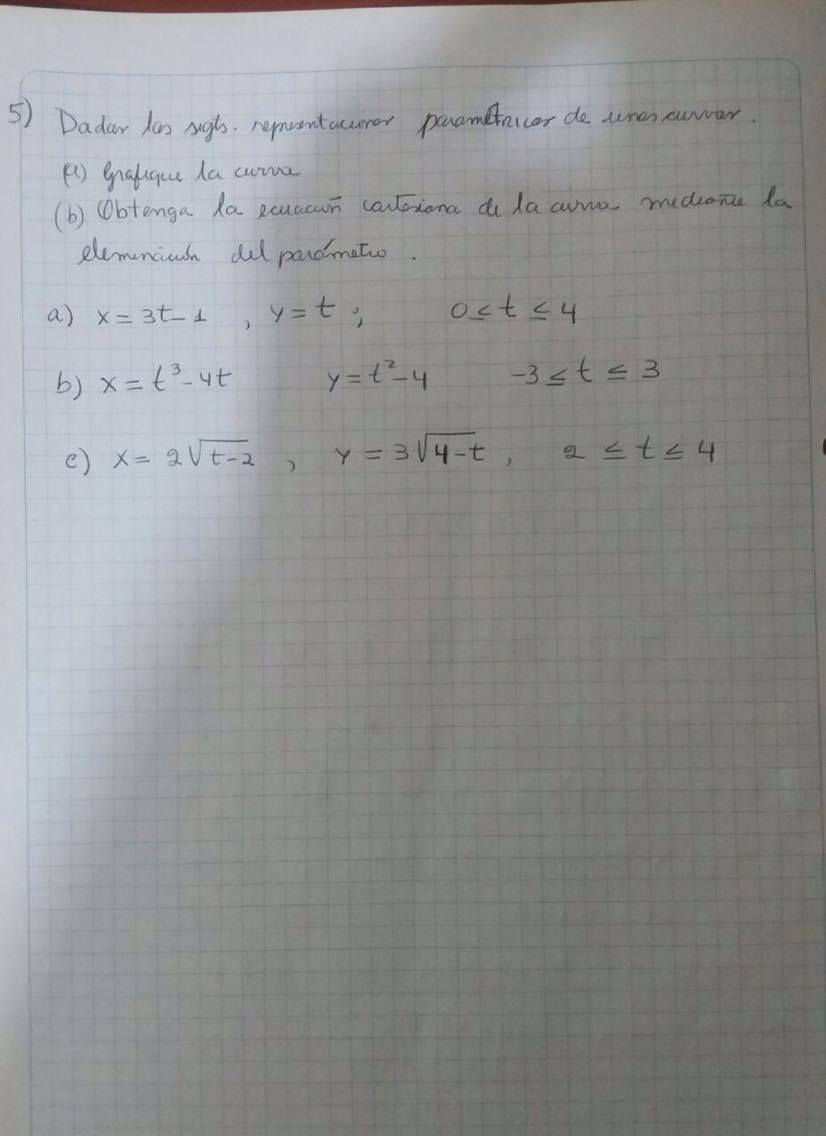 5) Dadas las sigts. representaciones paramétricas de unas curvas.
(a) Grafique la curva
(b) Obtenga la ecuación cartesiana de la curva mediante la
eleminación del parámetro.
a) x = 3t - 1 , y = t ; 0 ≤ t ≤ 4
b) x = t³ - 4t y = t² - 4 -3 ≤ t ≤ 3
c) x = 2√t-2 , y = 3√4-t , 2 ≤ t ≤ 4